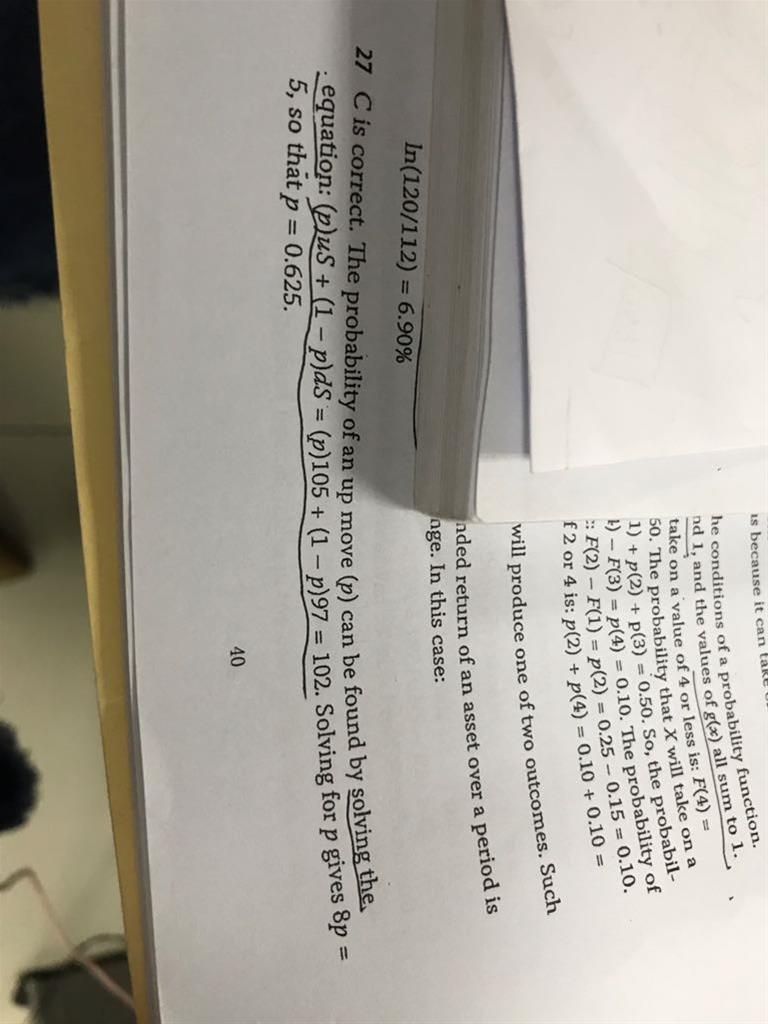 is because it can take
he conditions of a probability function.
nd 1, and the values of g(x) all sum to 1.
take on a value of 4 or less is: F(4) =
50. The probability that X will take on a
1) + p(2) + p(3) = 0.50. So, the probabil-
) – F(3) = p(4) = 0.10. The probability of
: F(2) – F(1) = p(2) = 0.25 – 0.15 = 0.10.
f 2 or 4 is: p(2) + p(4) = 0.10 + 0.10 =
will produce one of two outcomes. Such
nded return of an asset over a period is
nge. In this case:
ln(120/112) = 6.90%
27 C is correct. The probability of an up move (p) can be found by solving the
equation: (p)uS + (1 – p)dS = (p)105 + (1 – p)97 = 102. Solving for p gives 8p =
5, so that p = 0.625.
40